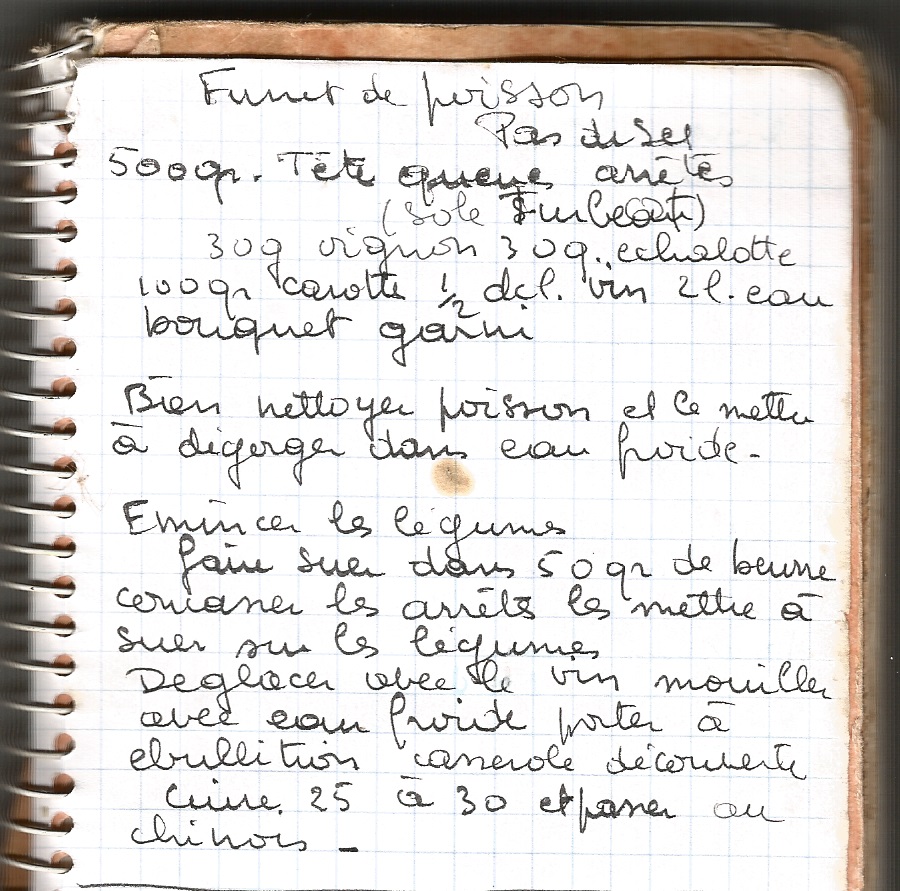 Fumet de poisson
Pas de sel
500gr. Tête queue arrêtes
(Sole Turbot)
30g oignon 30g. echalotte
100gr carotte 1/2 dcl. vin 2l. eau
bouquet garni
Bien nettoyer poisson et le mettre
à dégorger dans eau froide -
Emincer les légumes
faire suer dans 50gr de beurre
concasser les arrêtes les mettre à
suer sur les légumes
Deglacer avec le vin mouiller
avec eau froide porter à
ebullition casserole découverte
Cuire 25 à 30 et passer au
chinois -